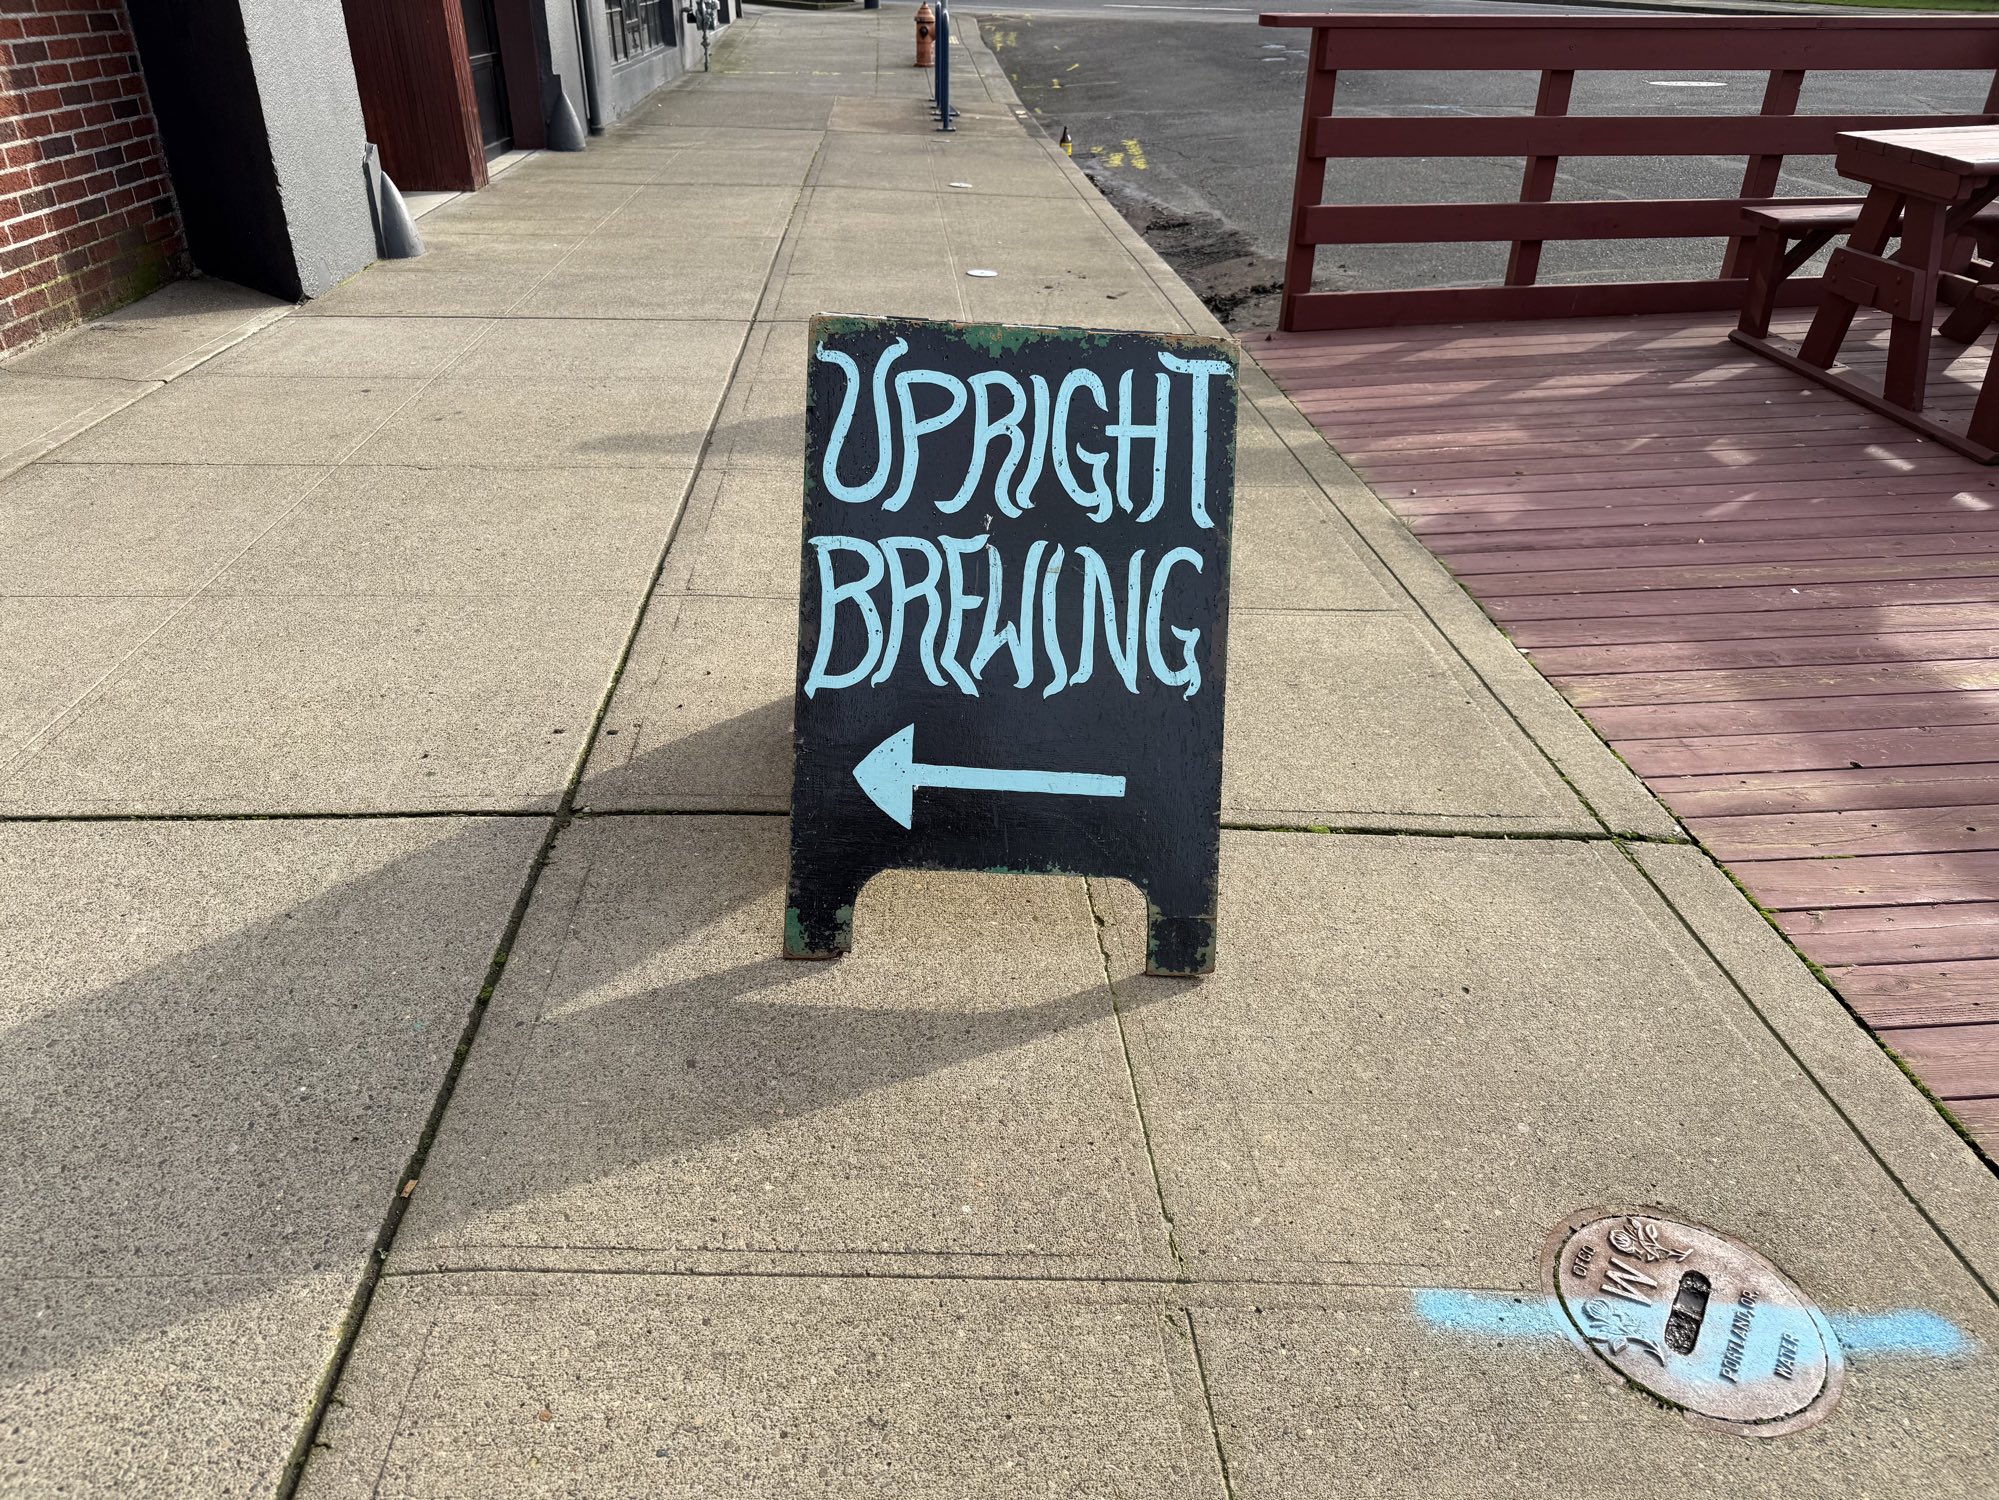 UPRIGHT
BREWING
W
PORTLAND, OR
WATER